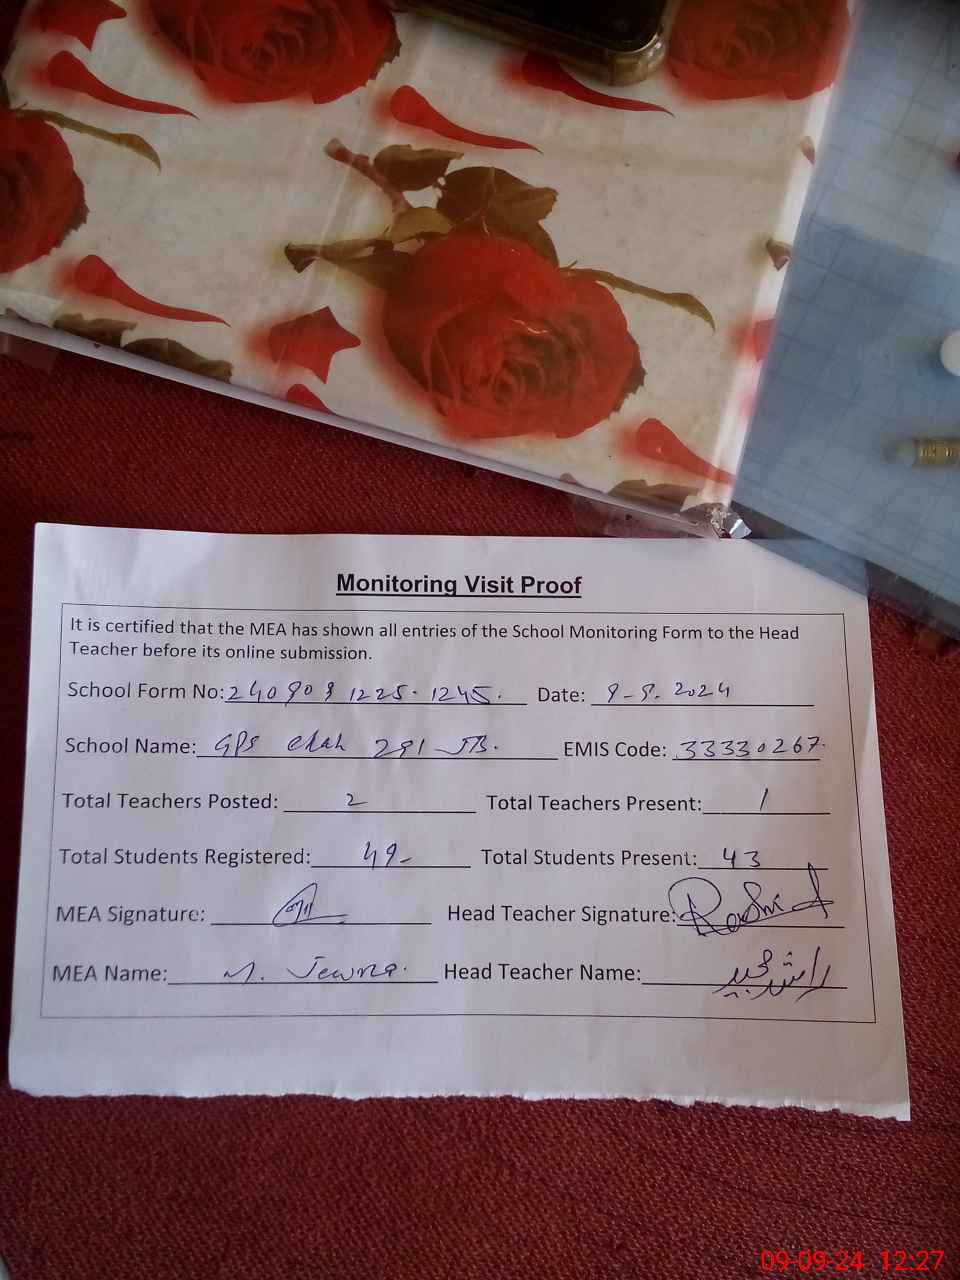 Monitoring Visit Proof
It is certified that the MEA has shown all entries of the School Monitoring Form to the Head
Teacher before its online submission.
School Form No: 240909 1225-1245. Date: 9-9-2024
School Name: GPS Chak 291 JB. EMIS Code: 33330267.
Total Teachers Posted: 2 Total Teachers Present: 1
Total Students Registered: 49- Total Students Present: 43
MEA Signature: Head Teacher Signature: Rashid
MEA Name: M. Head Teacher Name: راشد
09-09-24 12:27